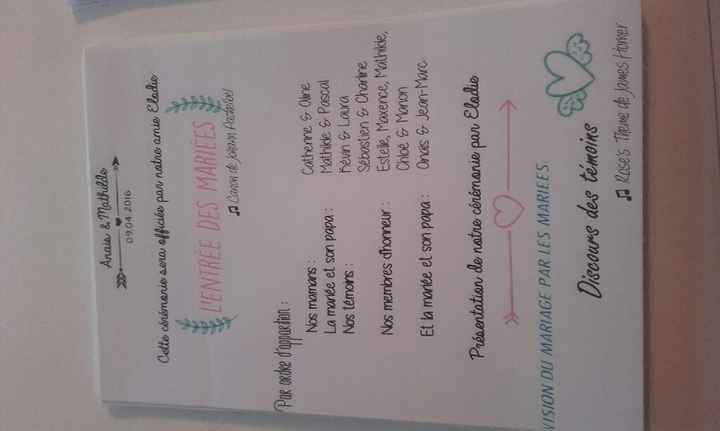 Anaïs & Mathilde
09.04.2016
Cette cérémonie sera officiée par notre amie Elodie
L'ENTRÉE DES MARIÉES
♫ Canon de Johann Pachelbel
Par ordre d'apparition :
Nos mamans : Catherine & Aline
La mariée et son papa : Mathilde & Pascal
Nos témoins : Kévin & Laura
Sébastien & Charline
Nos membres d'honneur : Estelle, Maxence, Mathilde,
Chloé & Manon
Et la mariée et son papa : Anaïs & Jean-Marc
Présentation de notre cérémonie par Elodie
VISION DU MARIAGE PAR LES MARIEES
Discours des témoins
♫ Rose's Theme de James Horner